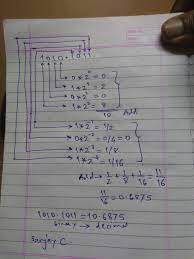 1010.1011
0*2⁰=0
1*2¹=2
0*2²=0
1*2³=8
10 Add
1*2⁻¹=1/2
0*2⁻²=0/4=0
1*2⁻³=1/8
1*2⁻⁴=1/16
Add→ 1/2+1/8+1/16=11/16
11/16=0.6875
1010.1011=10.6875
binary → decimal
Sanjay C.